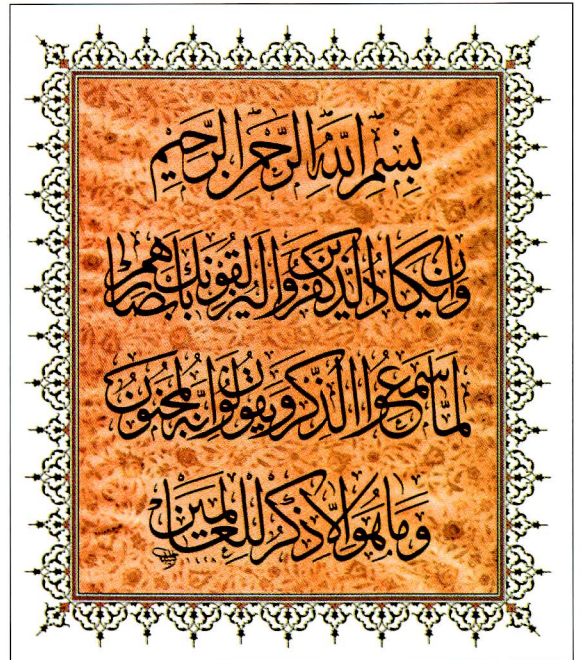 بِسْمِ اللَّهِ الرَّحْمٰنِ الرَّحِيمِ
وَإِنْ يَكَادُ الَّذِينَ كَفَرُوا لَيُزْلِقُونَكَ بِأَبْصَارِهِمْ
لَمَّا سَمِعُوا الذِّكْرَ وَيَقُولُونَ إِنَّهُ لَمَجْنُونٌ
وَمَا هُوَ إِلَّا ذِكْرٌ لِلْعَالَمِينَ
١٤٢٨